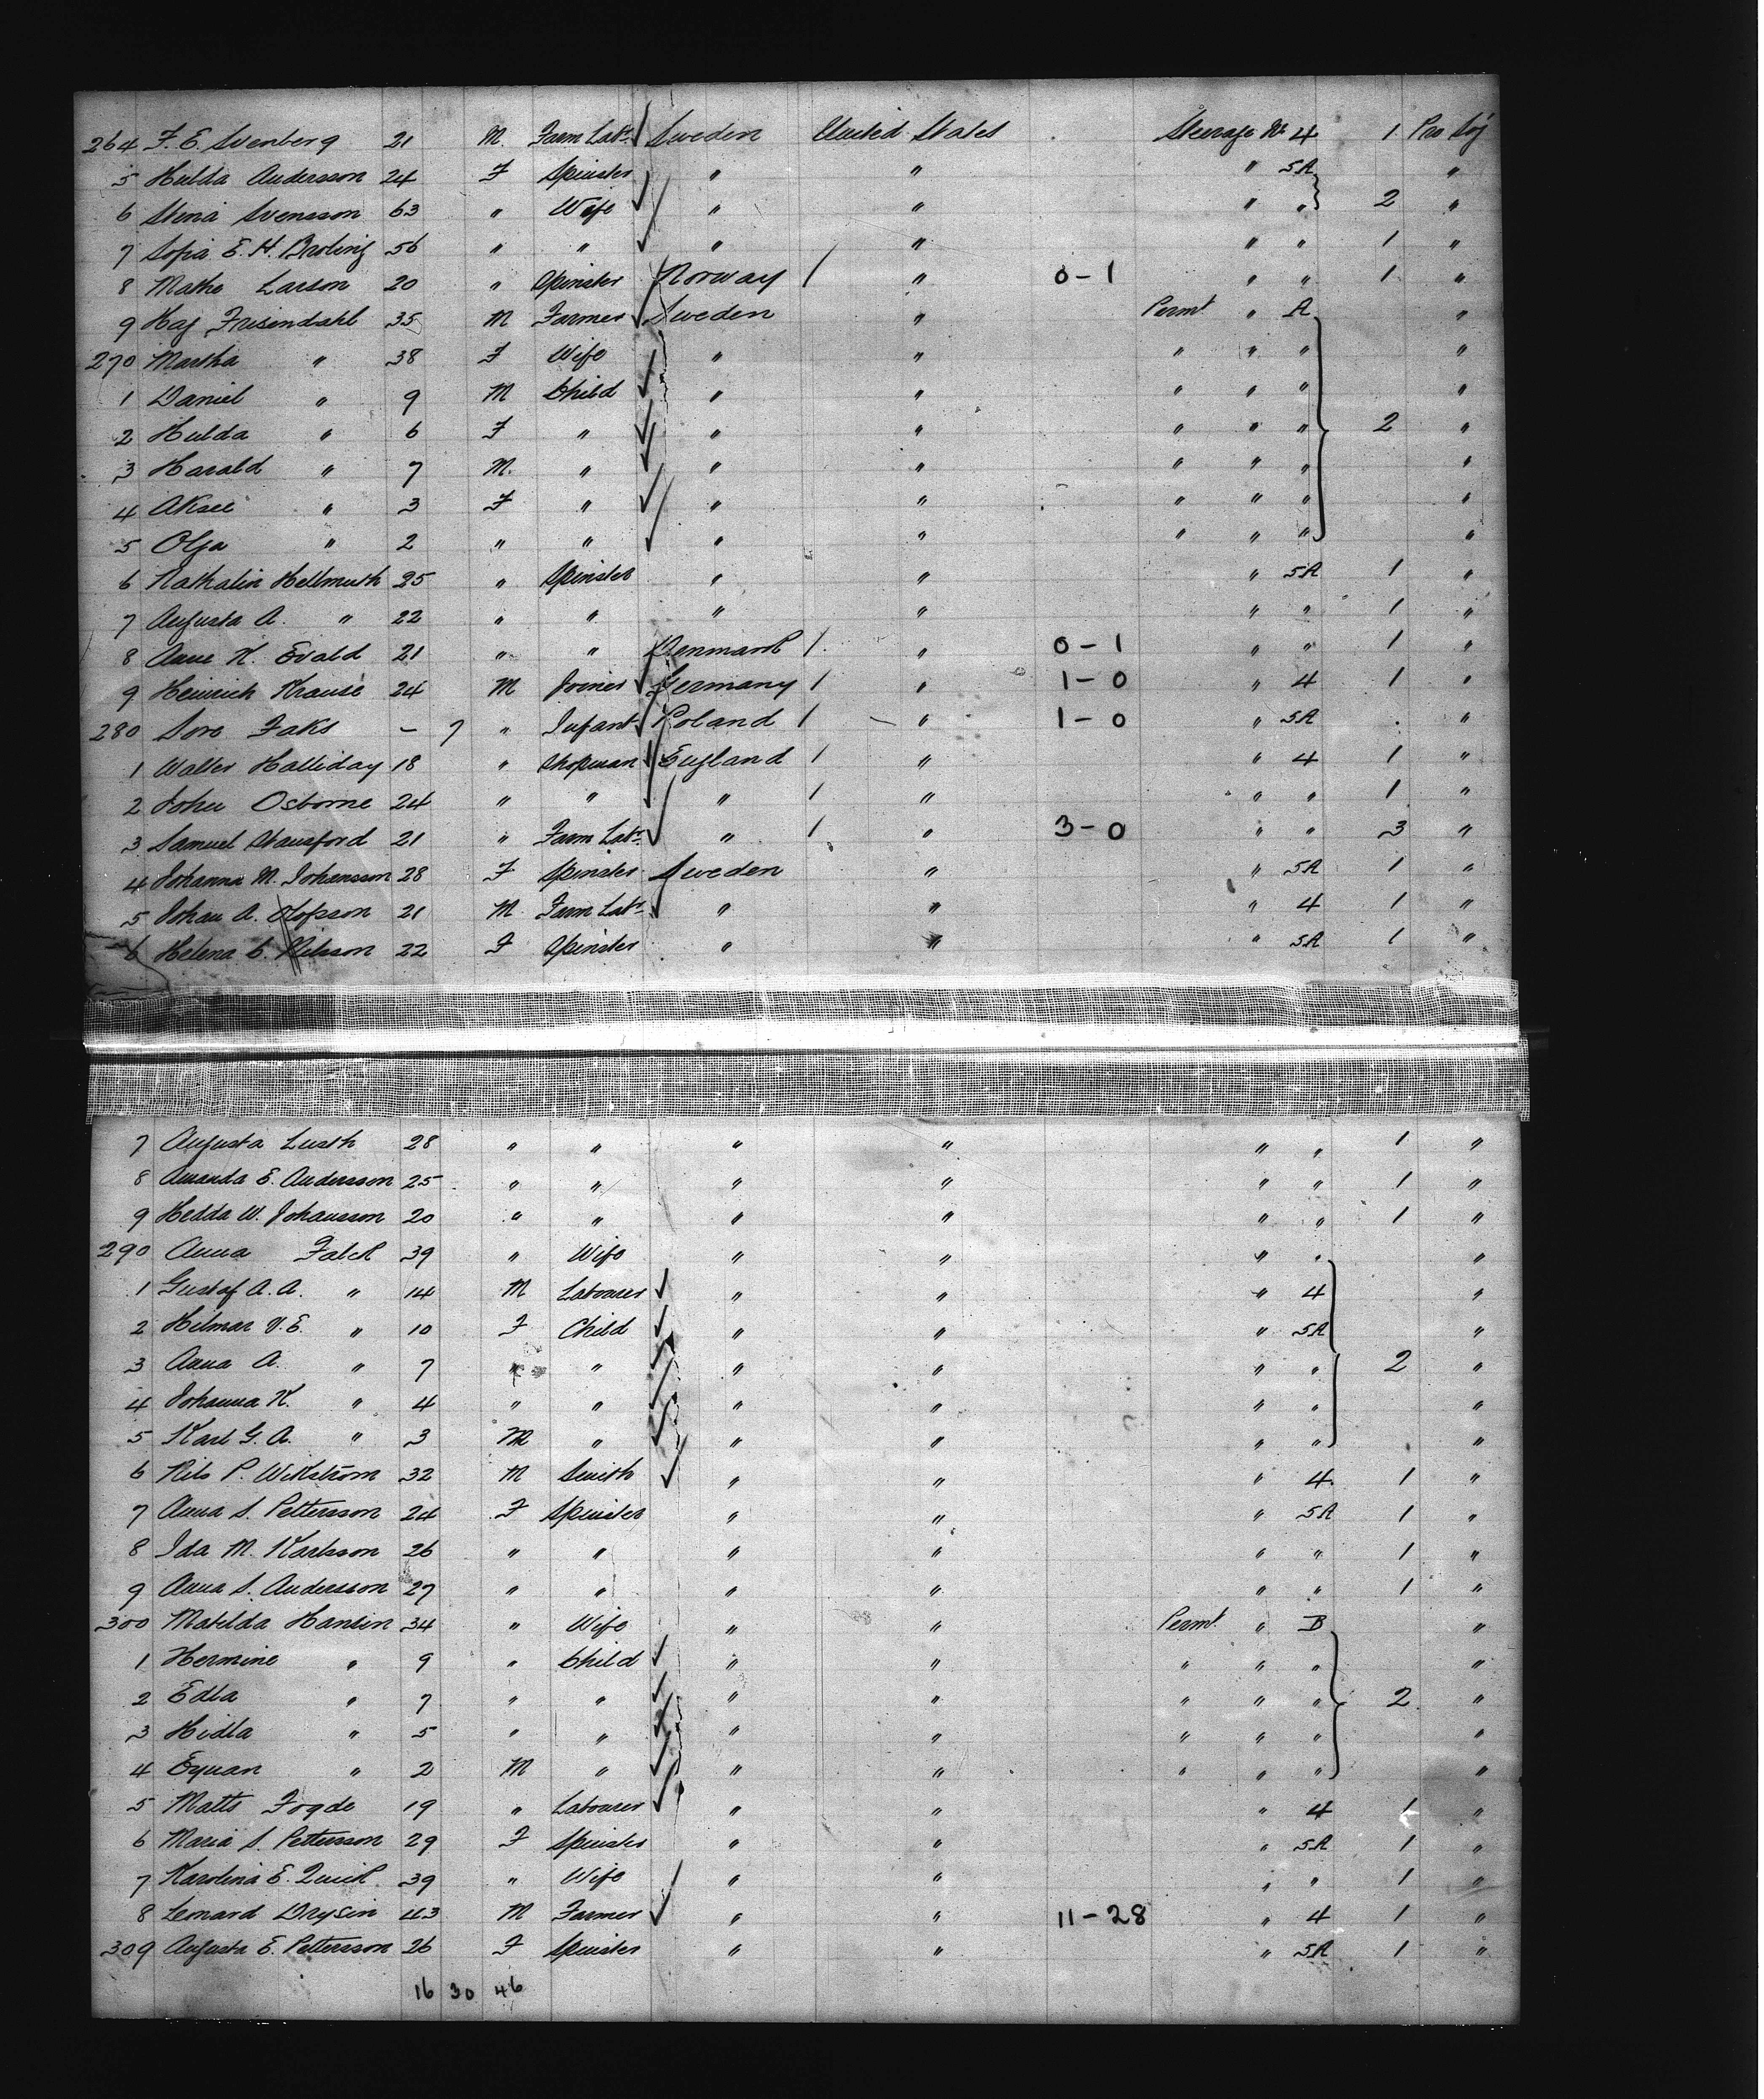 264 F. E. Svenberg 21 M. Farm Labr. Sweden United States Steerage No 4 1 Pro Soj
5 Hulda Andersson 24 F Spinster " " " 5A "
6 Stina Svensson 63 " Wife " " " " 2 "
7 Sofia E. H. Broling 56 " " " " " " 1 "
8 Mathe Larson 20 " Spinster Norway / " 0-1 " " 1 "
9 Haf Frisendahl 35 M Farmer Sweden " Permt. " A "
270 Martha " 38 F Wife " " " " " "
1 Daniel " 9 M Child " " " " " "
2 Hulda " 6 F " " " " " " 2 "
3 Harald " 7 M. " " " " " " "
4 Aksel " 3 F " " " " " " "
5 Olga " 2 " " " " " " " "
6 Nathalin Hellmuth 25 " Spinster " " " 5A 1 "
7 Augusta A. " 22 " " " " " " 1 "
8 Aane K. Evald 21 " " Denmark / " 0-1 " " 1 "
9 Heinrich Krause 24 M Joiner Germany / " 1-0 " 4 1 "
280 Sore Faks - 7 " Infant Poland / " 1-0 " 5A "
1 Walter Halliday 18 " Shopman England / " " 4 1 "
2 John Osborne 24 " " " / " " " 1 "
3 Samuel Stansford 21 " Farm Labr. " / " 3-0 " " 3 "
4 Johanna M. Johansson 28 F Spinster Sweden " " 5A 1 "
5 Johan A. Olofsson 21 M Farm Labr. " " " 4 1 "
6 Helena C. Nilsson 22 F Spinster " " " 5A 1 "
7 Augusta Lusth 28 " " " " " " 1 "
8 Amanda E. Andersson 25 " " " " " " 1 "
9 Hedda W. Johansson 20 " " " " " " 1 "
290 Anna Falck 39 " Wife " " " " "
1 Gustaf A. A. " 14 M Labourer " " " 4 "
2 Hilmar V. E. " 10 F Child " " " 5A "
3 Anna A. " 7 " " " " " " 2 "
4 Johanna K. " 4 " " " " " " "
5 Karl G. A. " 3 M " " " " " "
6 Nils P. Wikström 32 M Smith " " " 4 1 "
7 Anna S. Pettersson 24 F Spinster " " " 5A 1 "
8 Ida M. Karlsson 26 " " " " " " 1 "
9 Anna S. Andersson 27 " " " " " " 1 "
300 Matilda Hansen 34 " Wife " " Permt. " B "
1 Hermine " 9 " Child " " " " " "
2 Edla " 7 " " " " " " " 2 "
3 Hidla " 5 " " " " " " " "
4 Equan " 2 M " " " " " " "
5 Matts Fogde 19 " Labourer " " " 4 1 "
6 Maria S. Pettersson 29 F Spinster " " " 5A 1 "
7 Karolina E. Quick 39 " Wife " " " " 1 "
8 Leonard Drysin 43 M Farmer " " 11-28 " 4 1 "
309 Augusta E. Pettersson 26 F Spinster " " " 5A 1 "
16 30 46